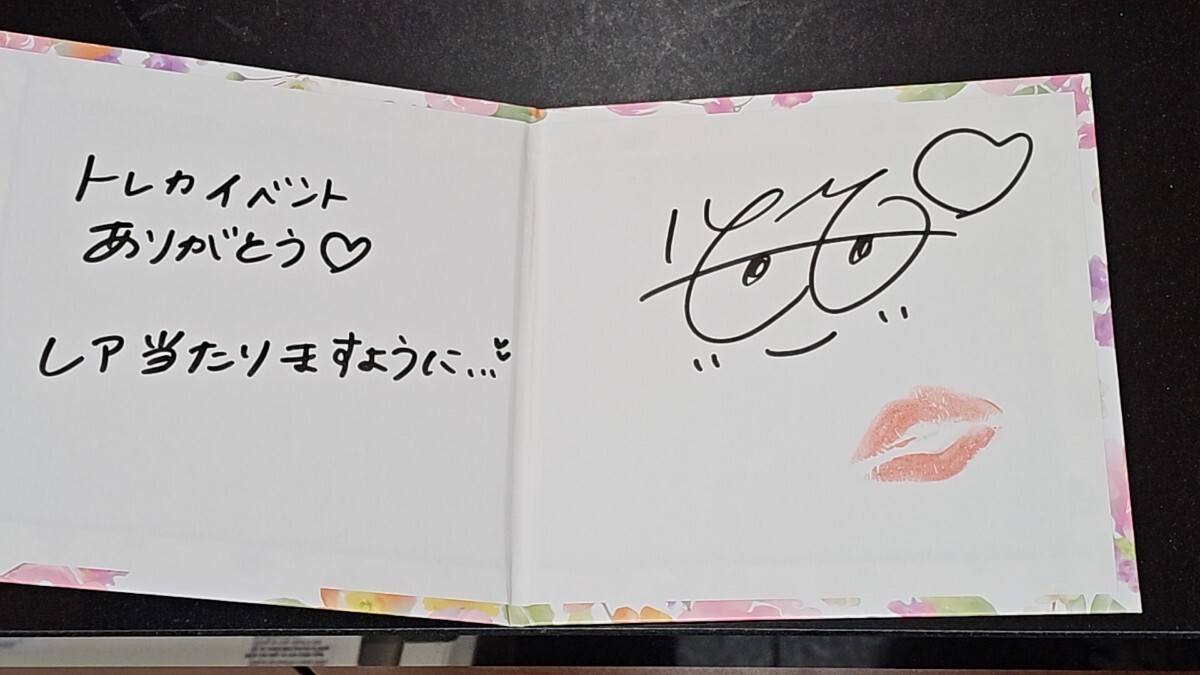 トレカイベント
ありがとう♡
レア当たりますように…